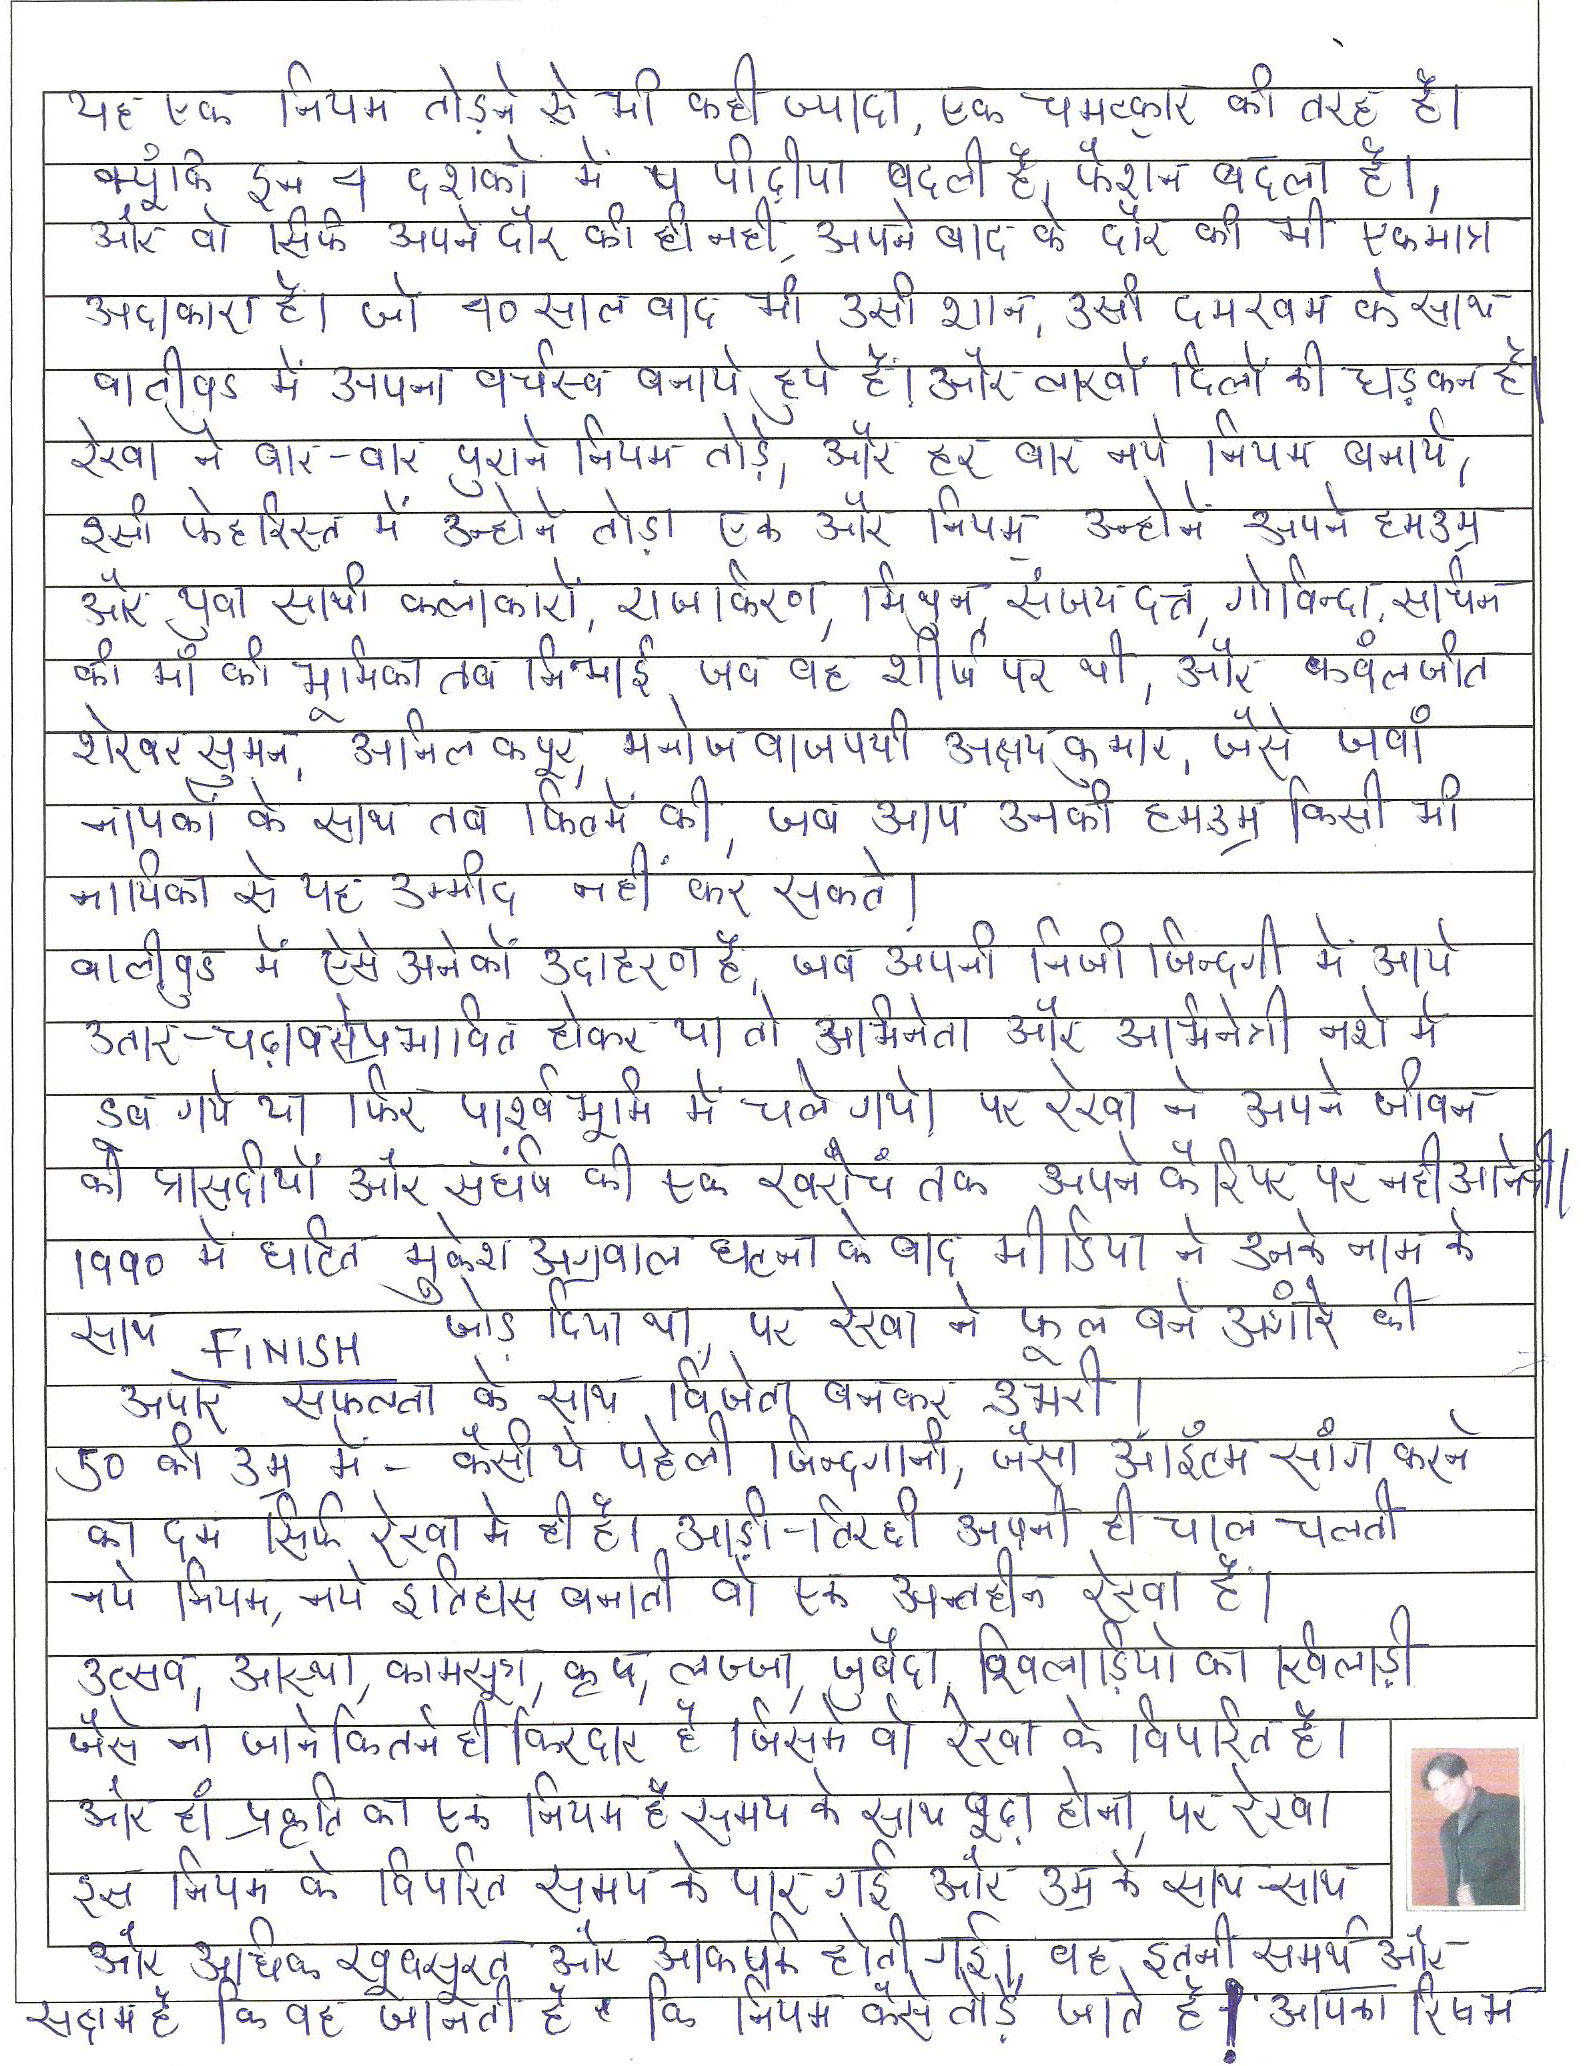 यह एक नियम तोड़ने से भी कही ज्यादा, एक चमत्कार की तरह है।
क्यूंकि इन ५ दशकों में ५ पीढ़ीया बदली है, फैशन बदला है।,
और वो सिर्फ अपने दौर की ही नहीं, अपने बाद के दौर की भी एकमात्र
अदाकारा है। जो ५० साल बाद भी उसी शान, उसी दमखम के साथ
बालीवुड में अपना वर्चस्व बनाये हुये हैं। और लाखों दिलों की धड़कन है।
रेखा ने बार-बार पुराने नियम तोड़े, और हर बार नये नियम बनाये,
इसी फेहरिस्त में उन्होने तोड़ा एक और नियम, उन्होनें अपने हमउम्र
और युवा साथी कलाकारों, राजकिरण, मिथुन, संजय दत्त, गोविन्दा, सचिन
की माँ की भूमिका तब निभाई, जब वह शीर्ष पर थी, और कवंलजीत
शेखर सुमन, अनिल कपूर, मनोज बाजपयी अक्षय कुमार, जैसे जवाँ
नायकों के साथ तब फिल्में की, जब आप उनकी हमउम्र किसी भी
नायिका से यह उम्मीद नहीं कर सकते।
बालीवुड में ऐसे अनेकों उदाहरण है, जब अपनी निजी जिन्दगी में आये
उतार-चढ़ाव से प्रभावित होकर या तो अभिनेता और अभिनेत्री नशे में
डूब गये या फिर पार्श्वभूमि में चले गये। पर रेखा ने अपने जीवन
की त्रासदीयों और संघर्ष की एक खरौंच तक अपने कैरियर पर नही आने दी।
१९९० में घटित मुकेश अग्रवाल घटना के बाद मीडिया ने उनके नाम के
साथ FINISH जोड़ दिया था, पर रेखा ने फूल बने अंगारे की
अपार सफलता के साथ विजेता बनकर उभरी।
50 की उम्र में - कैसी ये पहेली जिन्दगानी, जैसा आइटम सांग करने
का दम सिर्फ रेखा मे ही है। आड़ी-तिरछी अपनी ही चाल चलती
नये नियम, नये इतिहास बनाती वो एक अन्तहीन रेखा है।
उत्सव, आस्था, कामसूत्र, कृष, लज्जा, जुबैदा, खिलाड़ियो का खिलाड़ी
जैसे ना जाने कितने ही किरदार है जिसमे वो रेखा के विपरित है।
और हाँ प्रकृति का एक नियम है समय के साथ बूढ़ा होना, पर रेखा
इस नियम के विपरित समय के पार गई और उम्र के साथ-साथ
और अधिक खूबसूरत और आकर्षक होती गई।, वह इतनी समर्थ और
सक्षम है कि वह जानती है कि नियम कैसे तोड़े जाते है! आपका रिषभ